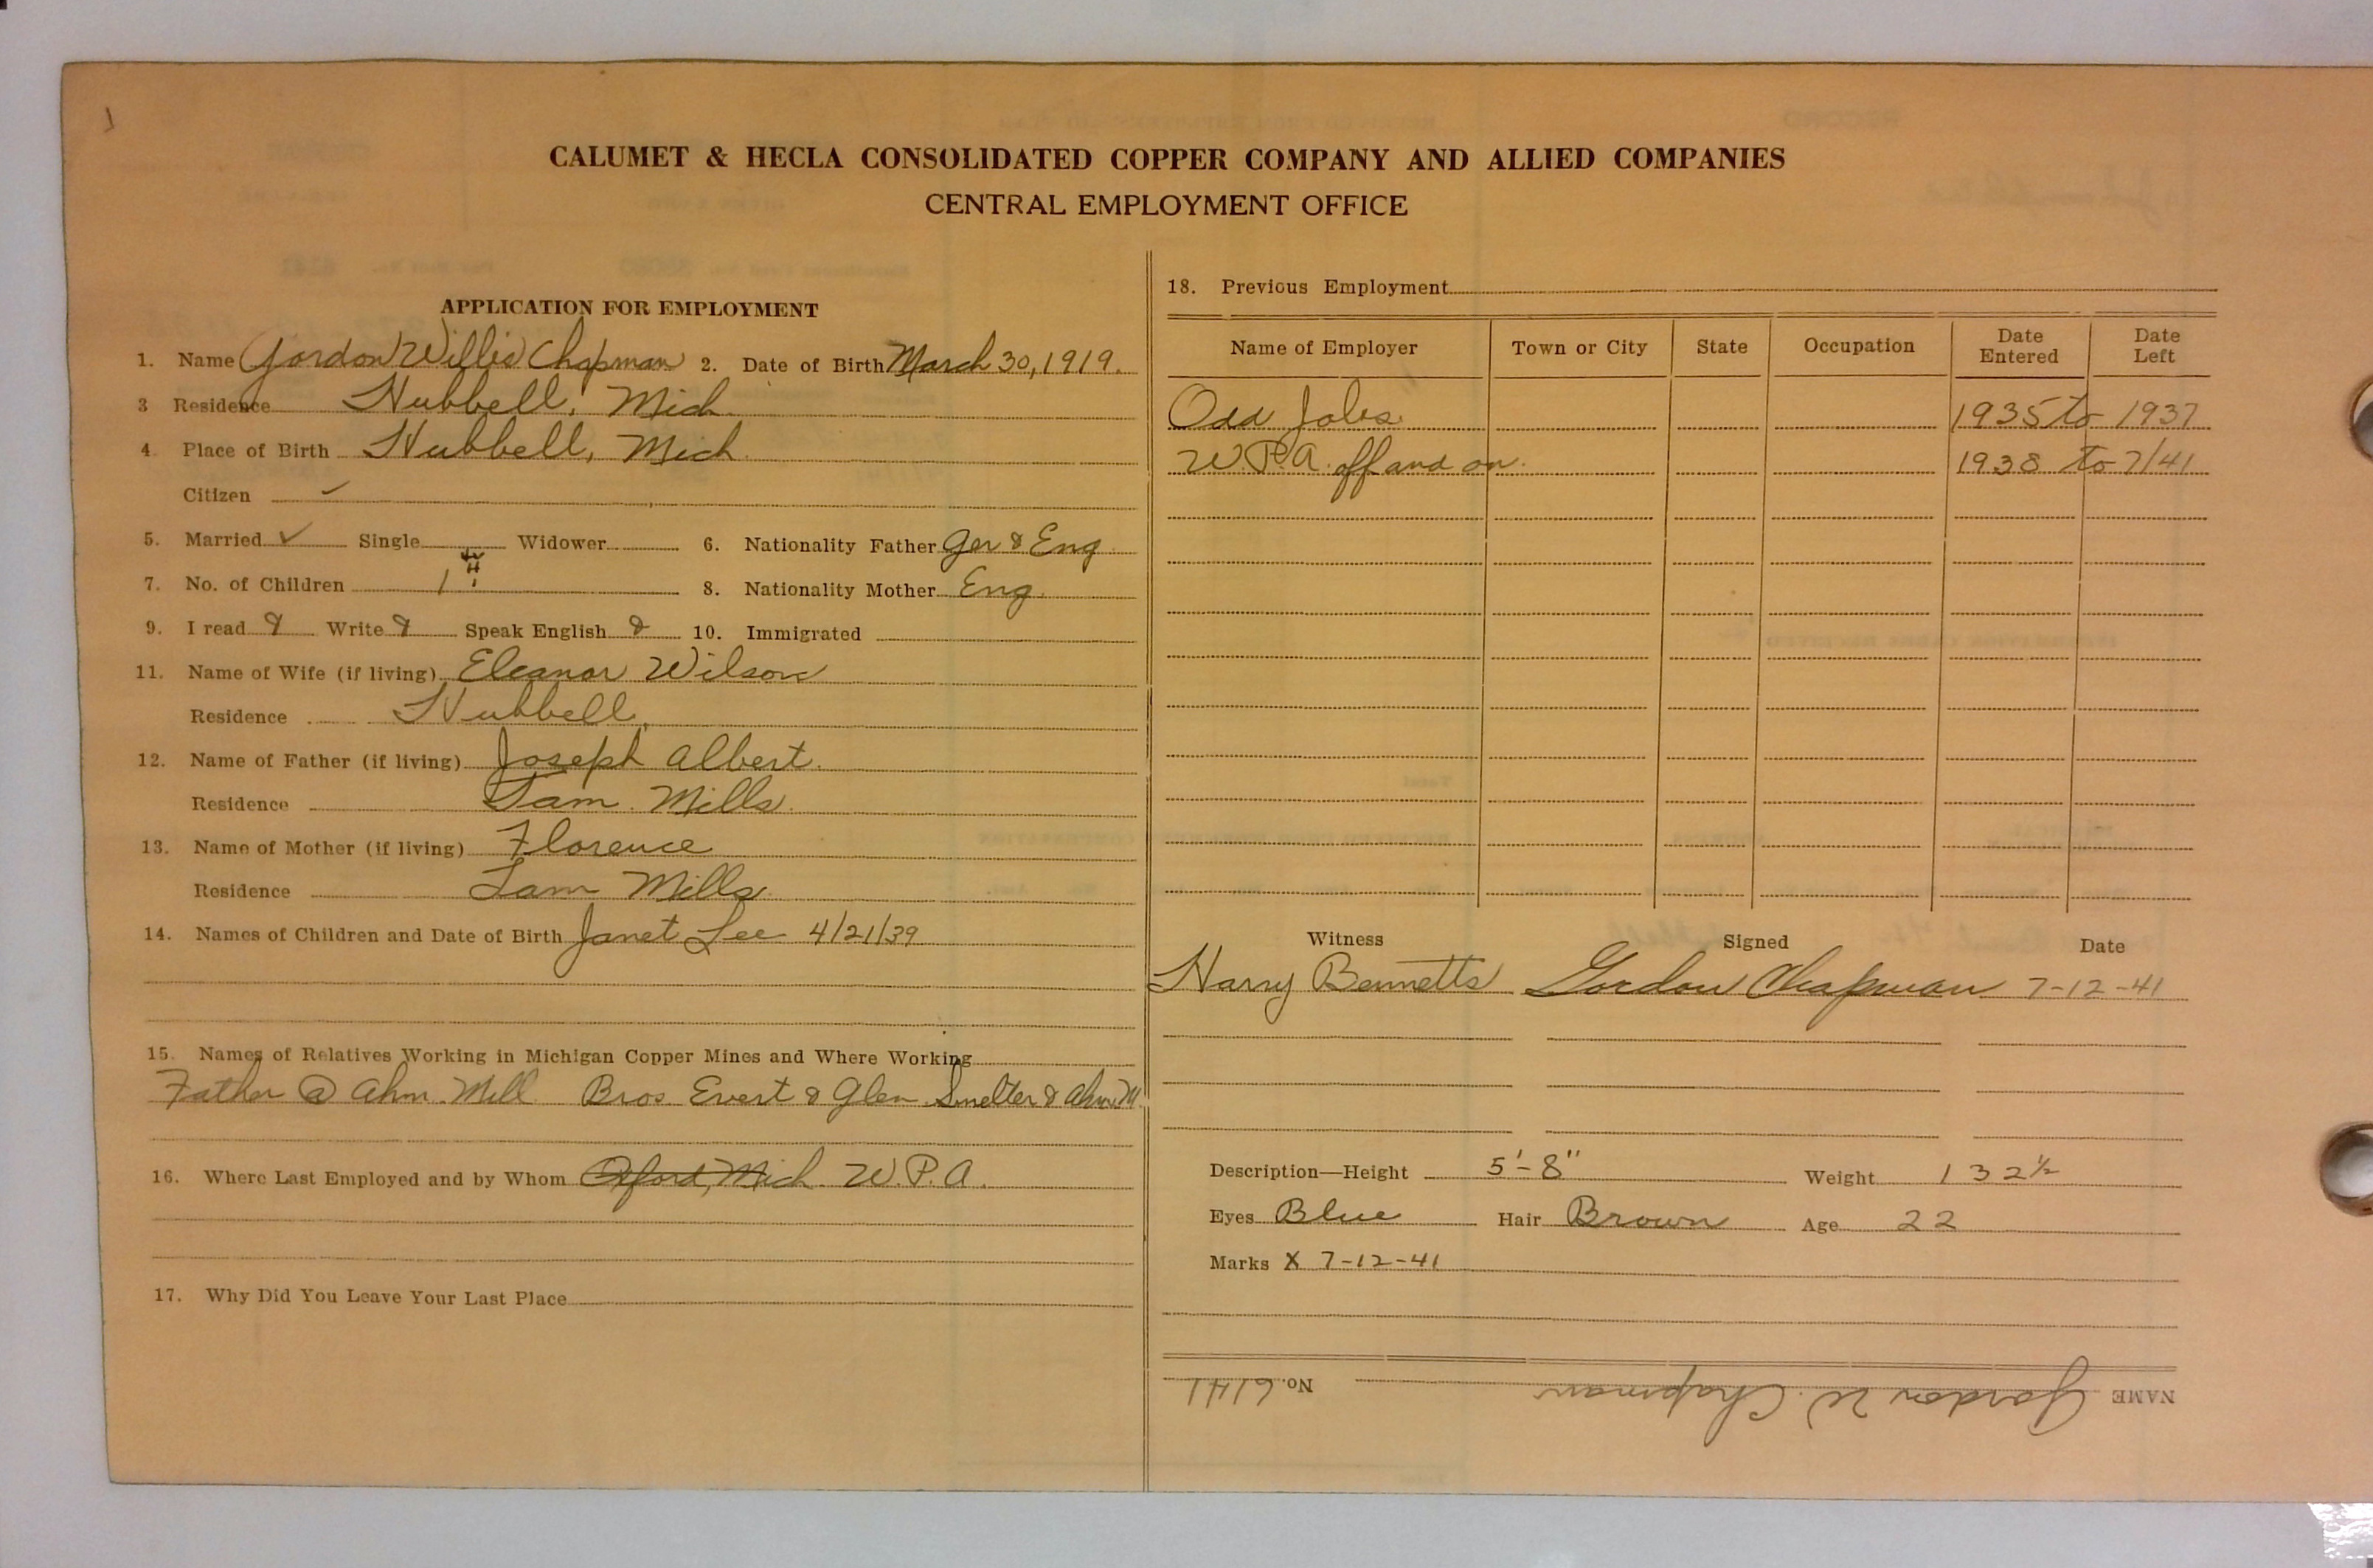 CALUMET & HECLA CONSOLIDATED COPPER COMPANY AND ALLIED COMPANIES
CENTRAL EMPLOYMENT OFFICE
APPLICATION FOR EMPLOYMENT
1. Name Gordon Willis Chapman 2. Date of Birth March 30, 1919.
3 Residence Hubbell, Mich
4. Place of Birth Hubbell, Mich.
Citizen ✓
5. Married ✓ Single Widower 6. Nationality Father Ger & Eng
7. No. of Children 1 8. Nationality Mother Eng.
9. I read & Write & Speak English & 10. Immigrated
11. Name of Wife (if living) Eleanor Wilson
Residence Hubbell,
12. Name of Father (if living) Joseph Albert.
Residence Tam. Mills.
13. Name of Mother (if living) Florence
Residence Tam Mills.
14. Names of Children and Date of Birth Janet Lee 4/21/39
15. Names of Relatives Working in Michigan Copper Mines and Where Working
Father @ Ahm. Mill Bros. Evert & Glen Smelter & Ahm. M.
16. Where Last Employed and by Whom Oxford, Mich. W.P.A.
17. Why Did You Leave Your Last Place
18. Previous Employment
Name of Employer Town or City State Occupation Date Entered Date Left
Odd Jobs. 1935 to 1937
W.P.A. off and on. 1938 to 7/41
Witness Signed Date
Harry Bennetts Gordon Chapman 7-12-41
Description—Height 5'-8" Weight 132½
Eyes Blue Hair Brown Age 22
Marks X 7-12-41
NAME Gordon W. Chapman No. 6141